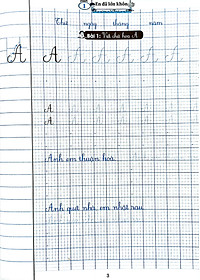 Em đã lớn khôn
Thứ ngày tháng năm
Bài 1: Viết chữ hoa A
A A A A A A
A
A
Anh em thuận hoà
Anh quá nhà, em nhất sau
3